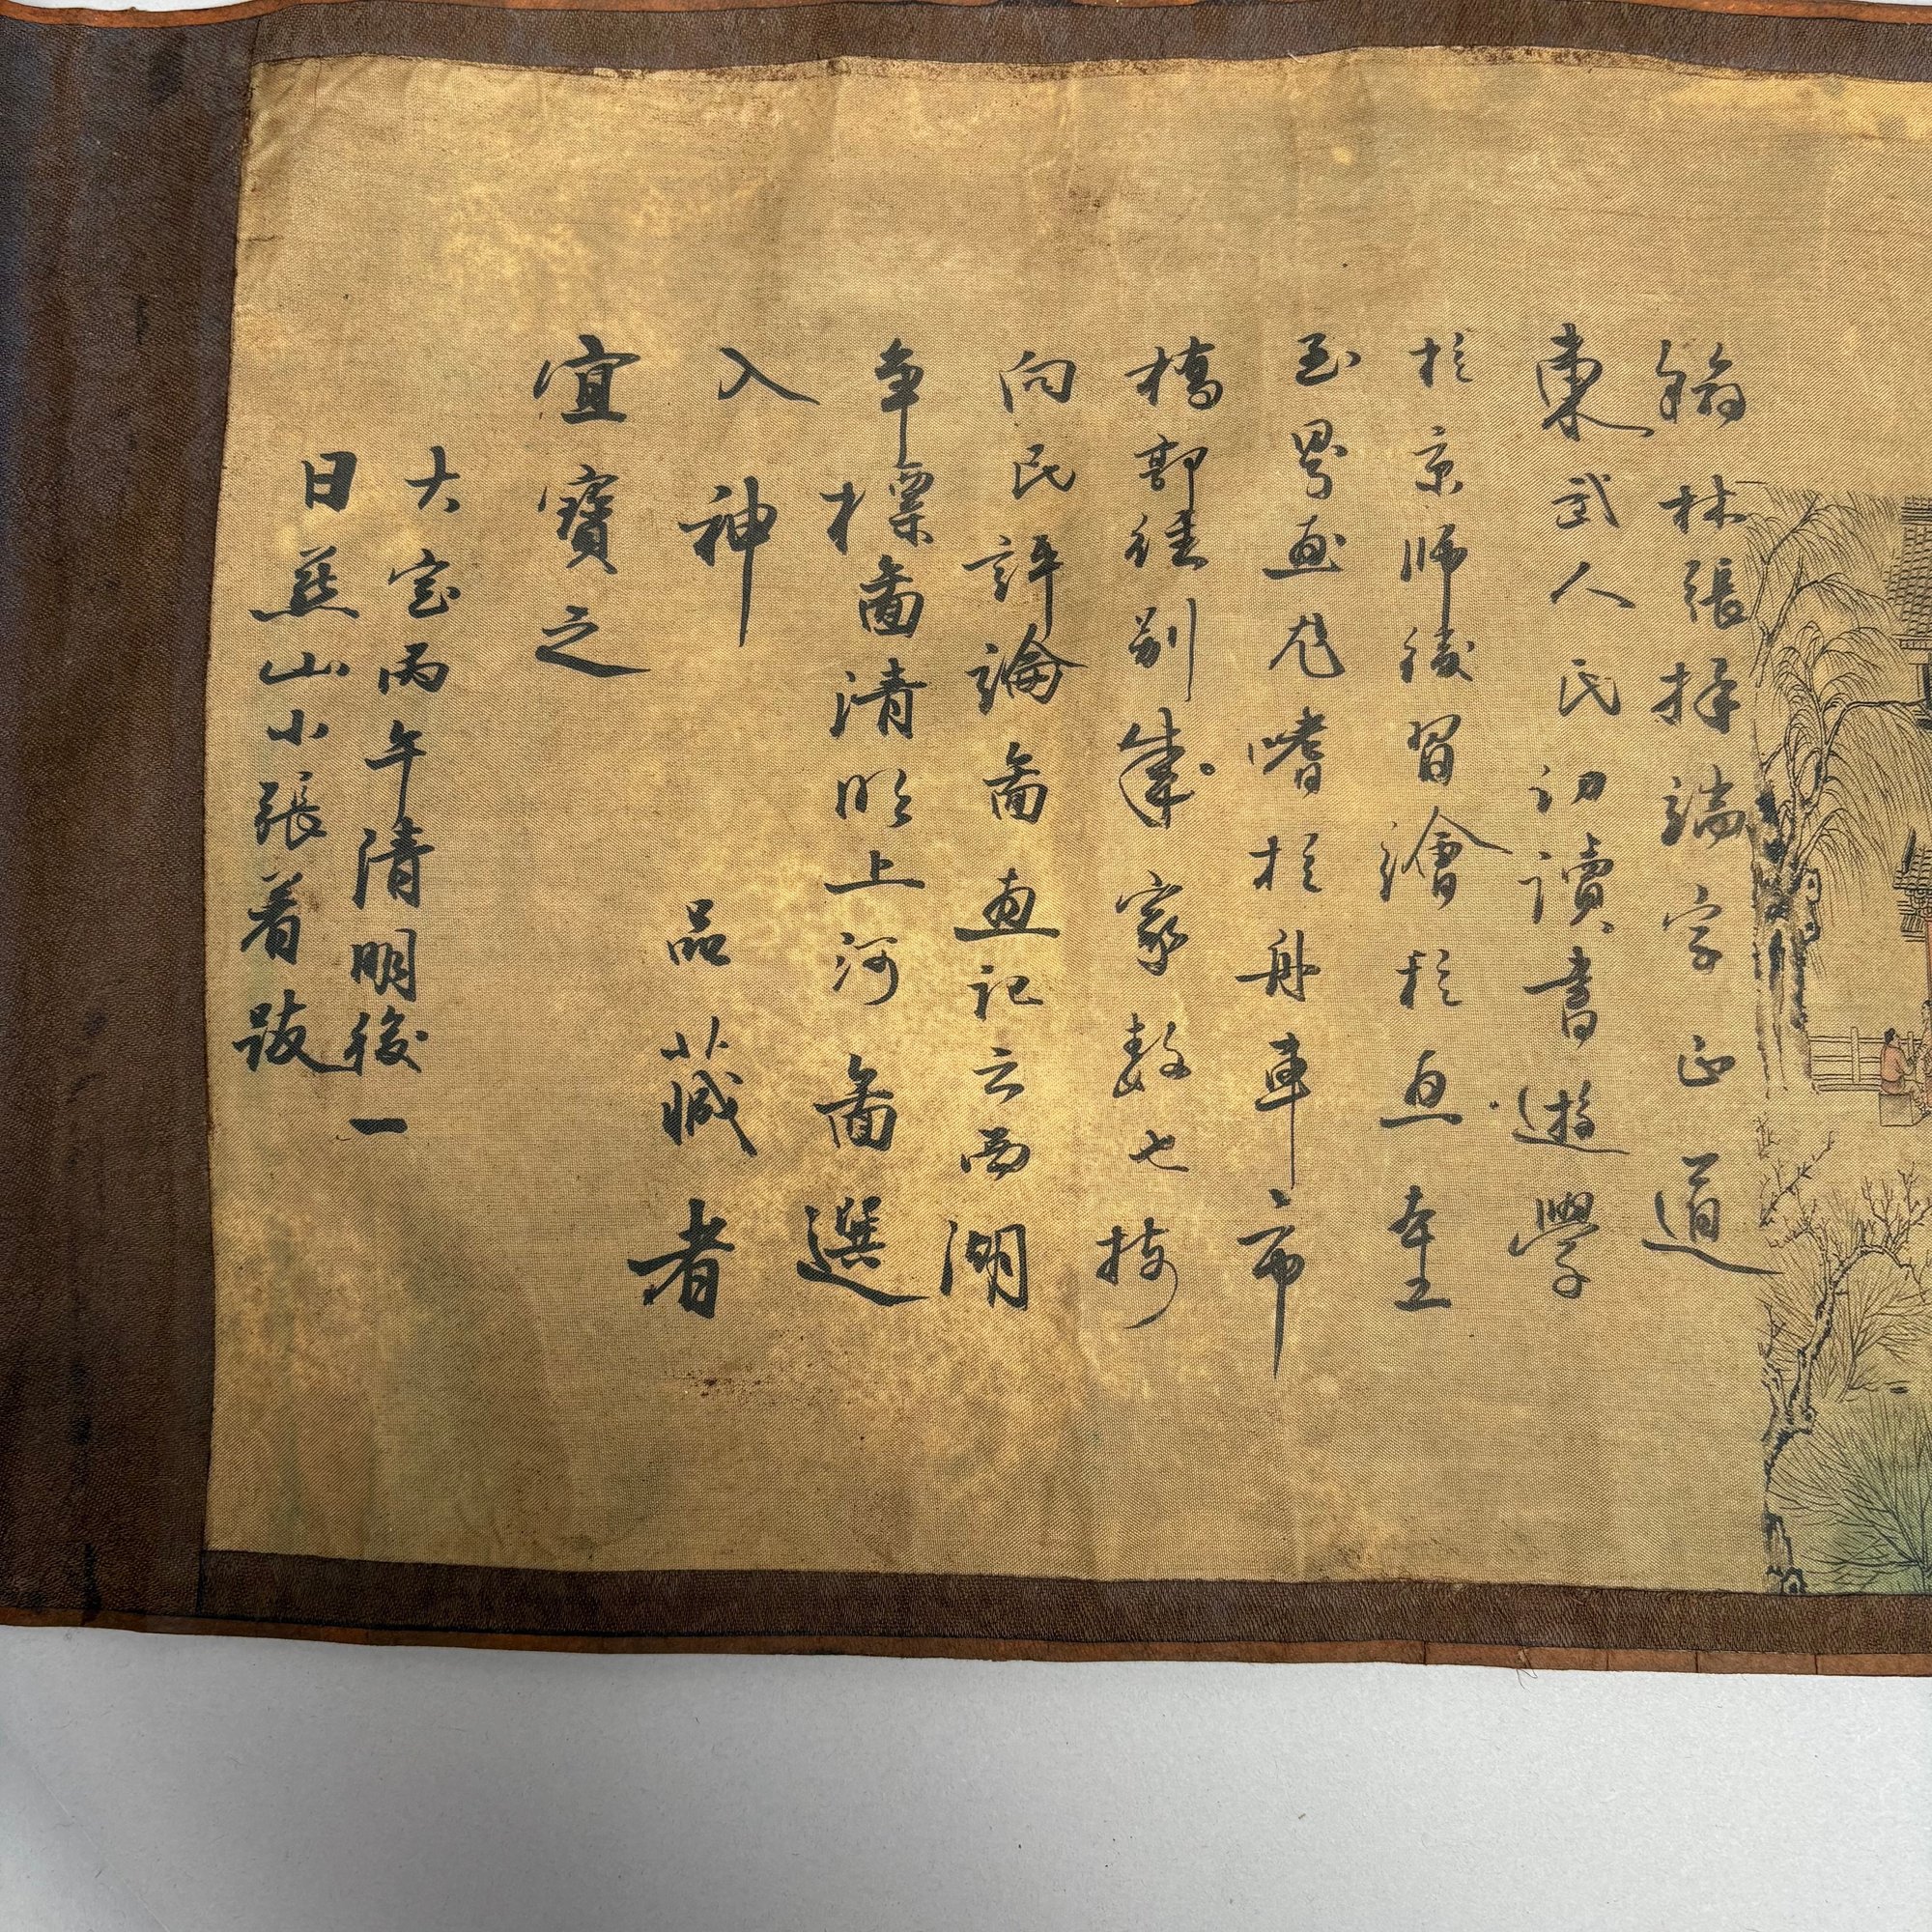 翰林張擇端字正道
東武人民讀書遊學
於京師後習繪於直本工
玉界畫尤嗜於舟車市
橋郭徑別成家數七按
向民評論圖畫記云西湖
爭標圖清明上河圖選
入神品藏者
宜寶之
大定丙午清明後一
日燕山小張着跋